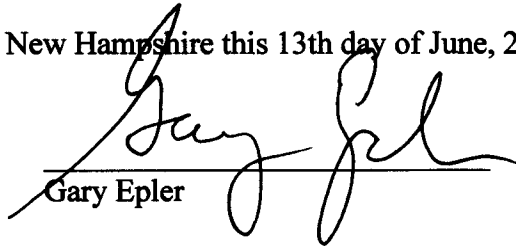 New Hampshire this 13th day of June, 2
Gary Epler
Gary Epler